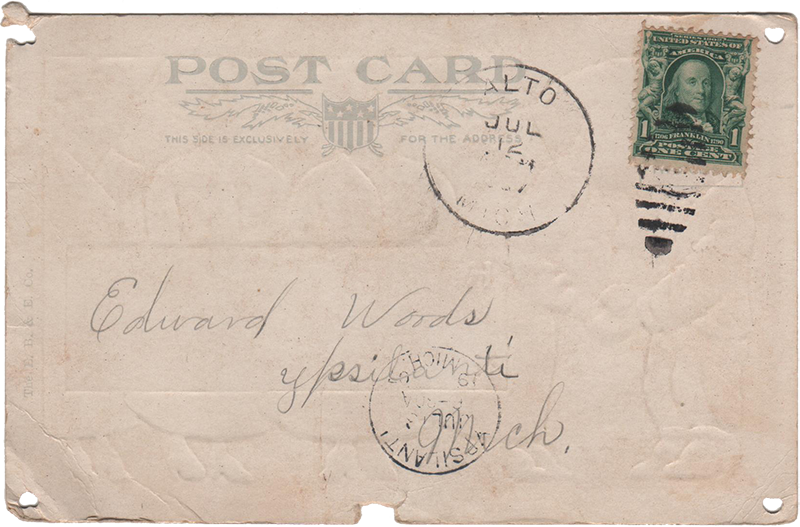 POST CARD
THIS SIDE IS EXCLUSIVELY FOR THE ADDRESS
ALTO
JUL
12
MICH
SERIES 1902
UNITED STATES OF
AMERICA
1 1
FRANKLIN
POSTAGE
ONE CENT
Edward Woods
Ypsilanti
Mich.
YPSILANTI
MICH.
JUL
The E. B. & E. Co.